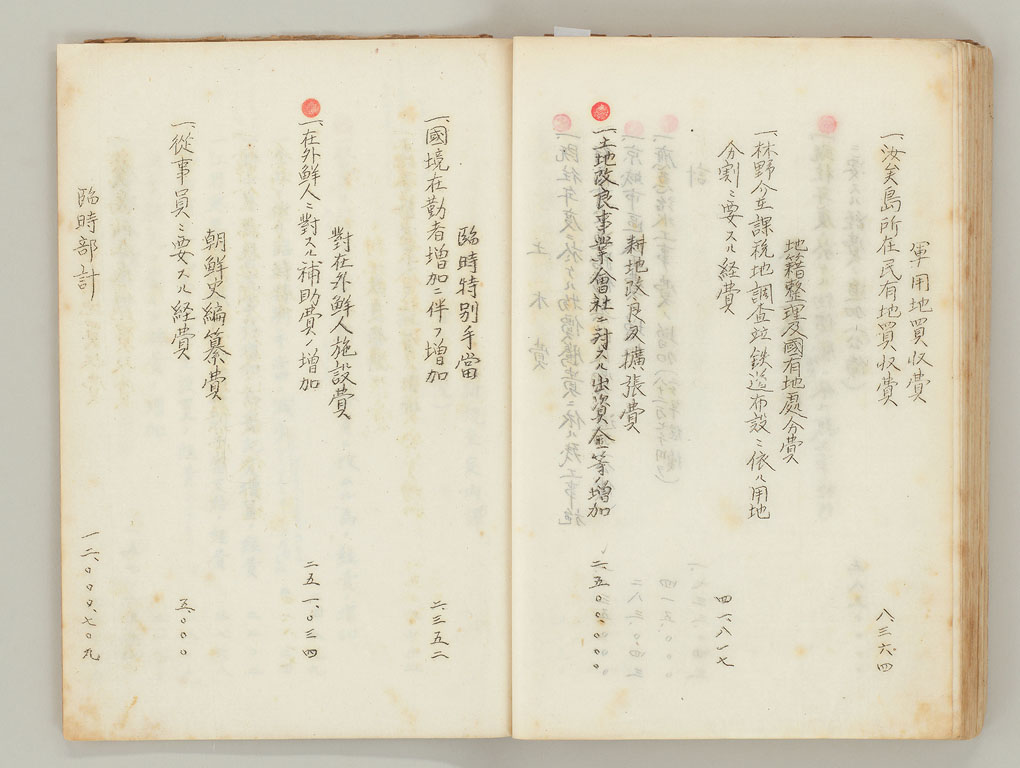 軍用地買収費
一、汝矣島所在民有地買収費 八三六四
地籍整理及國有地處分費
一、林野令並課税地調査竝鉄道布設ニ依ル用地
分割ニ要スル経費 四一、八一七
耕地改良及擴張費
一、土地改良事業會社ニ対スル出資金等ノ増加 二、五〇〇、〇〇〇
臨時特別手當
一、國境在勤者増加ニ伴フ増加 二三五二
對在外鮮人施設費
一、在外鮮人ニ對スル補助費ノ増加 二五一、〇三四
朝鮮史編纂費
一、從事員ニ要スル経費 五、〇〇〇
臨時部計 一二、〇〇〇、七〇九